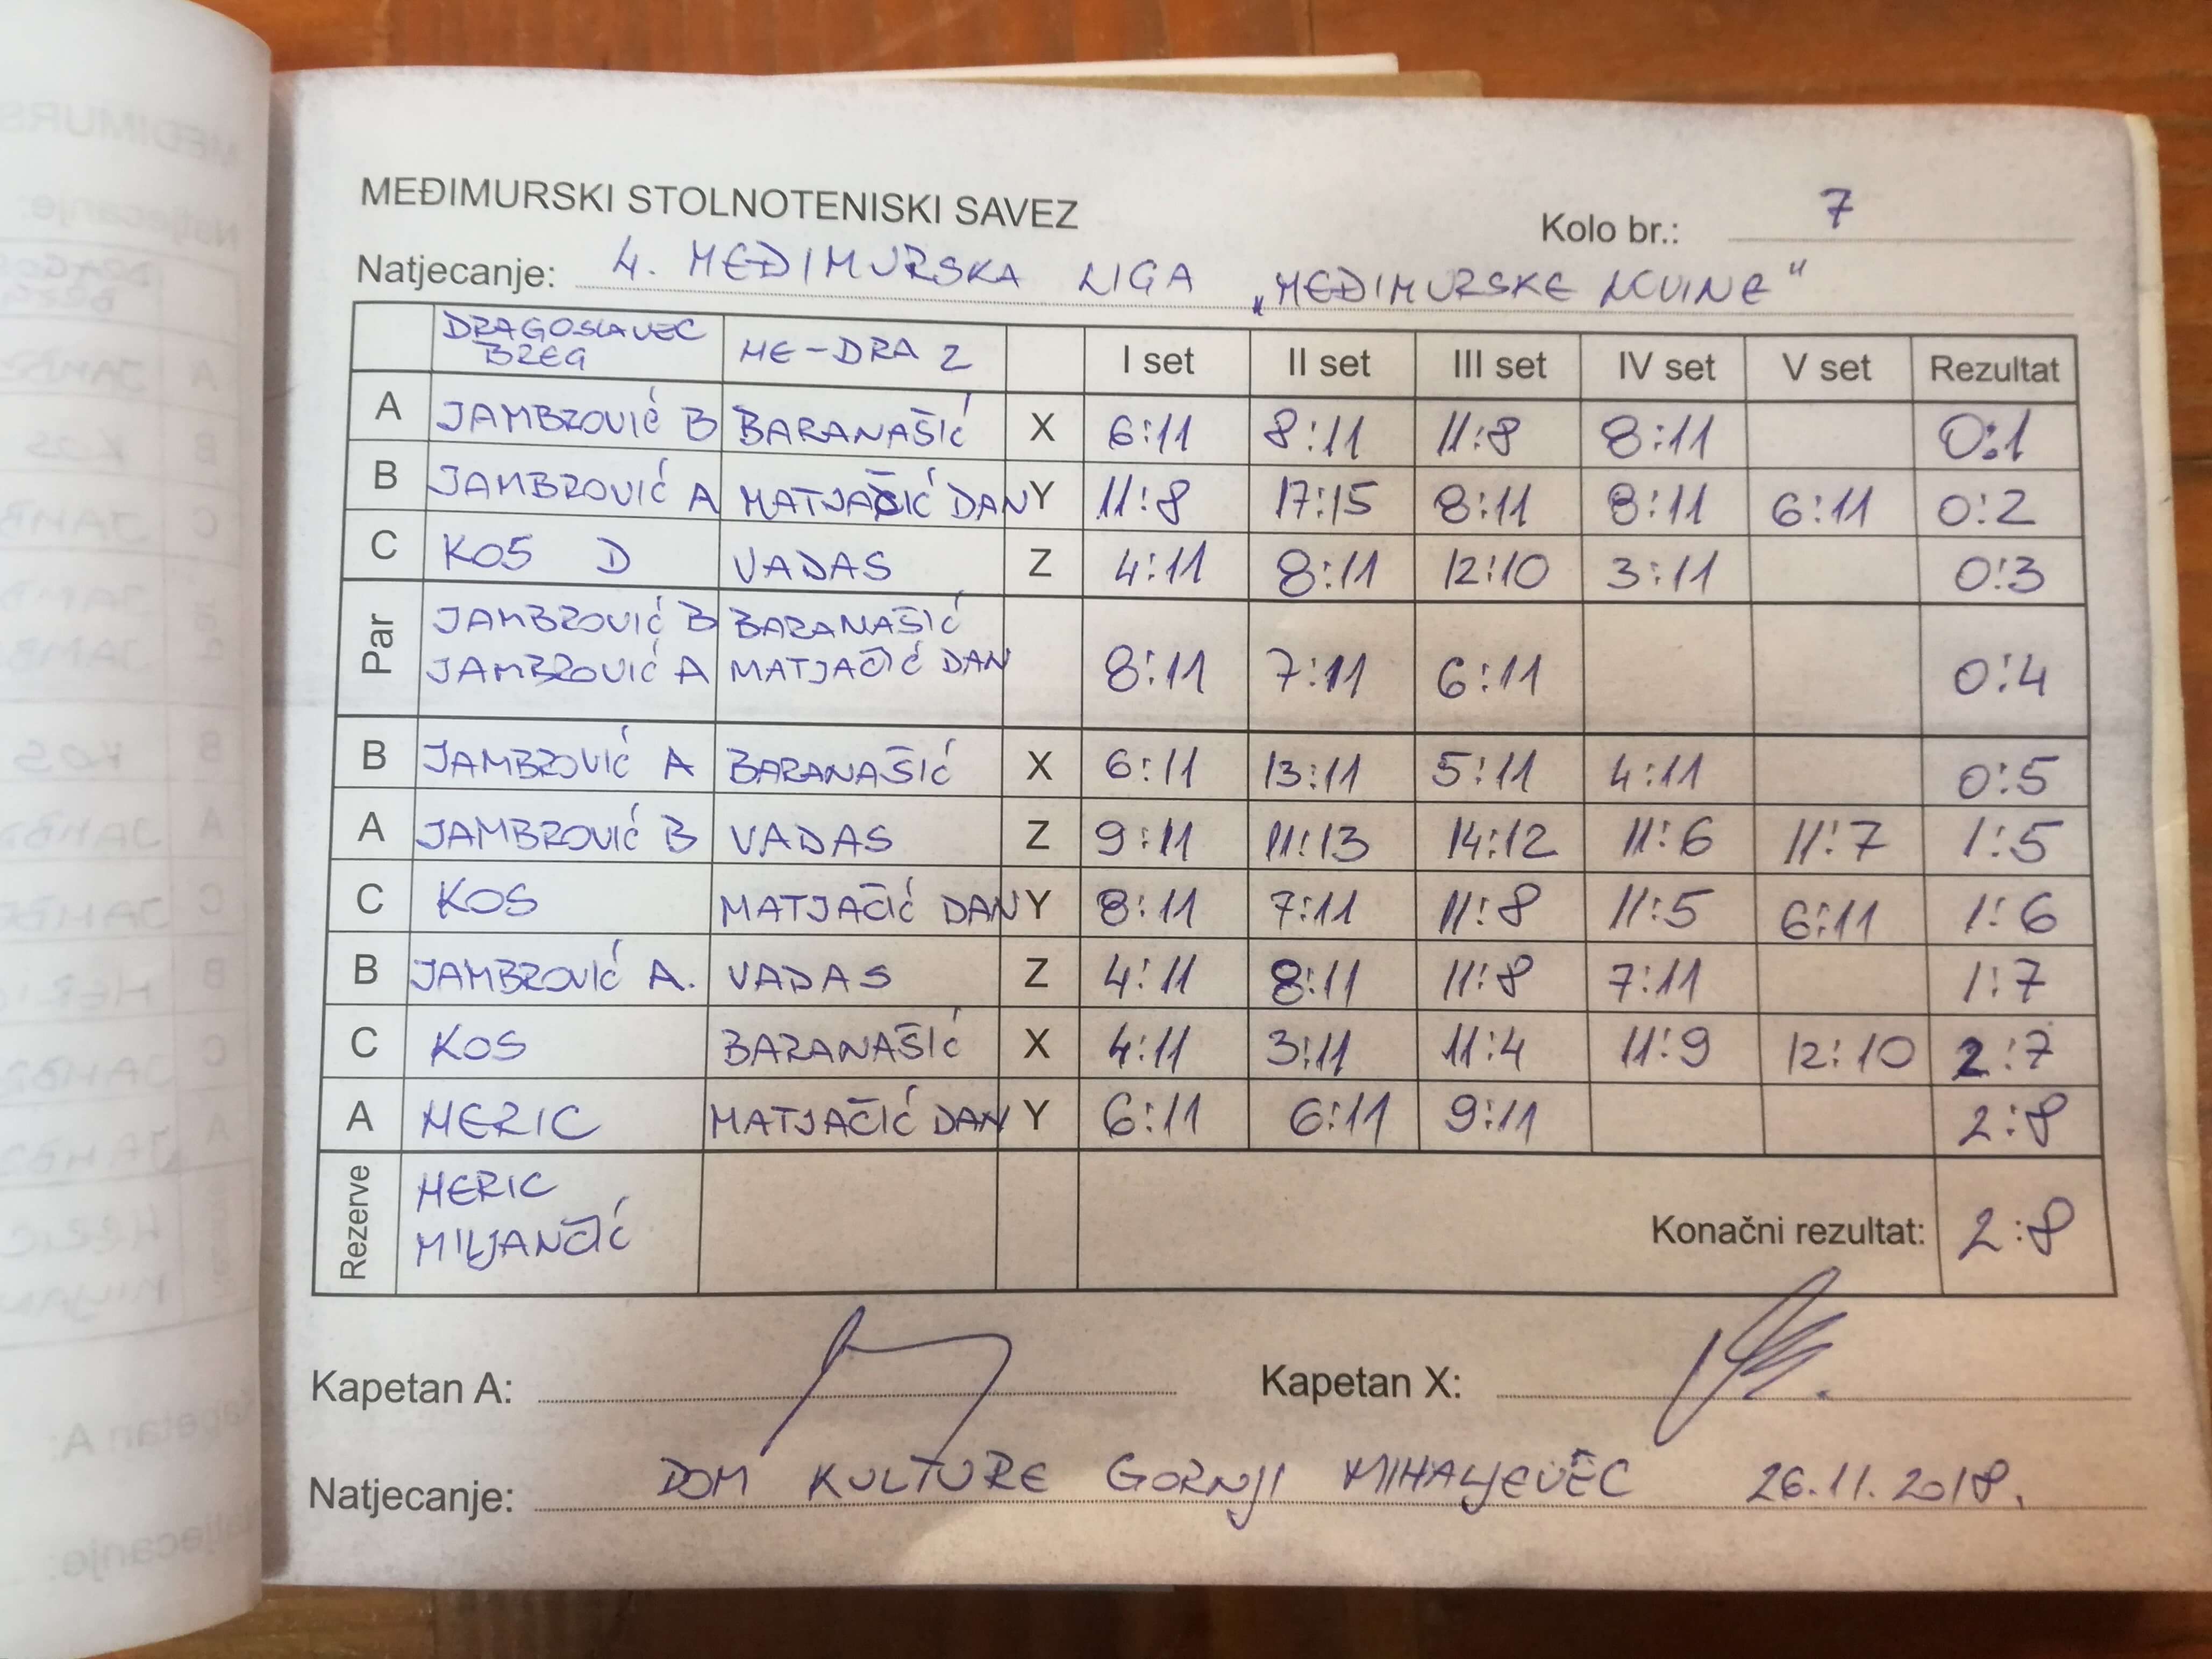 MEĐIMURSKI STOLNOTENISKI SAVEZ
Kolo br.: 7
Natjecanje: 4. MEĐIMURSKA LIGA „MEĐIMURSKE NOVINE"
DRAGOSLAVEC BREG ME-DRA 2 I set II set III set IV set V set Rezultat
A JAMBROVIĆ B BARANAŠIĆ X 6:11 8:11 11:8 8:11 0:1
B JAMBROVIĆ A MATJAČIĆ DAN Y 11:8 17:15 8:11 8:11 6:11 0:2
C KOS D VADAS Z 4:11 8:11 12:10 3:11 0:3
Par JAMBROVIĆ B BARANAŠIĆ
JAMBROVIĆ A MATJAČIĆ DAN 8:11 7:11 6:11 0:4
B JAMBROVIĆ A BARANAŠIĆ X 6:11 13:11 5:11 4:11 0:5
A JAMBROVIĆ B VADAS Z 9:11 11:13 14:12 11:6 11:7 1:5
C KOS MATJAČIĆ DAN Y 8:11 7:11 11:8 11:5 6:11 1:6
B JAMBROVIĆ A. VADAS Z 4:11 8:11 11:8 7:11 1:7
C KOS BARANAŠIĆ X 4:11 3:11 11:4 11:9 12:10 2:7
A HERIC MATJAČIĆ DAN Y 6:11 6:11 9:11 2:8
Rezerve HERIC
MILJANČIĆ
Konačni rezultat: 2:8
Kapetan A: Kapetan X:
Natjecanje: DOM KULTURE GORNJI MIHALJEVEC 26.11.2018.